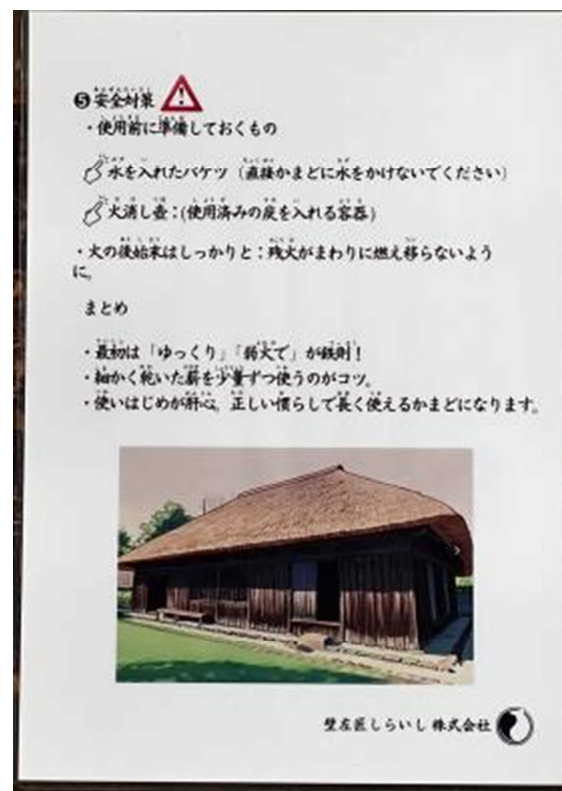 ❺安全対策
・使用前に準備しておくもの
水を入れたバケツ（直接かまどに水をかけないでください）
火消し壺：(使用済みの炭を入れる容器)
・火の後始末はしっかりと：残火がまわりに燃え移らないよう
に。
まとめ
・最初は「ゆっくり」「弱火で」が鉄則！
・細かく乾いた薪を少量ずつ使うのがコツ。
・使いはじめが肝心。正しい慣らしして長く使えるかまどになります。
壁左匠しらいし 株式会社